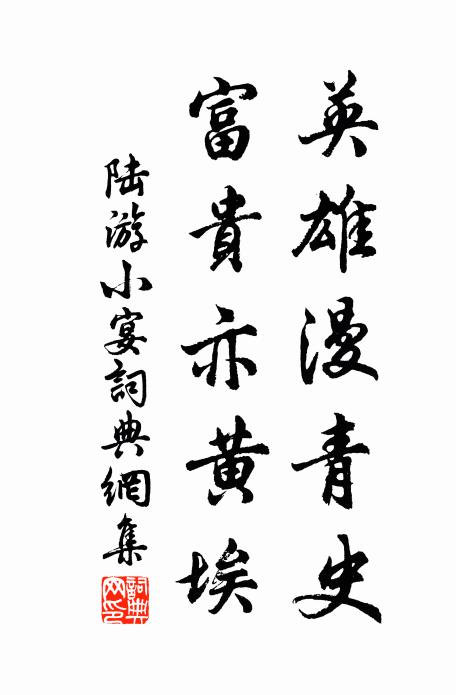 英雄漫青史
富貴亦黄埃
陆游小宴詞典網集
詞典
网印